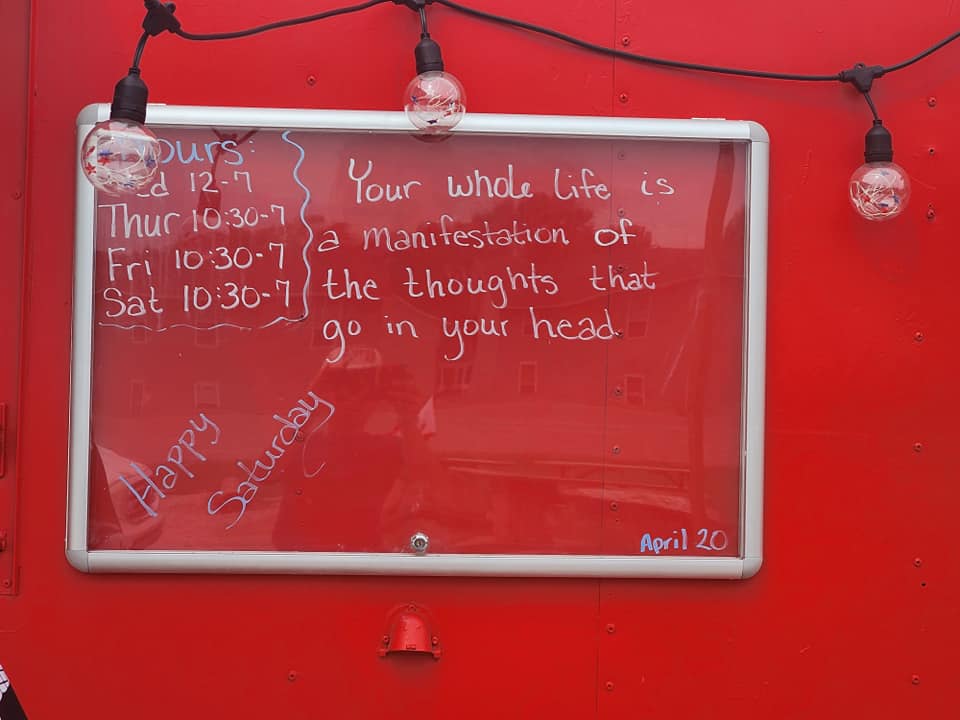 Hours:
Wed 12-7
Thur 10:30-7
Fri 10:30-7
Sat 10:30-7
Your whole life is
a manifestation of
the thoughts that
go in your head.
Happy
Saturday
April 20